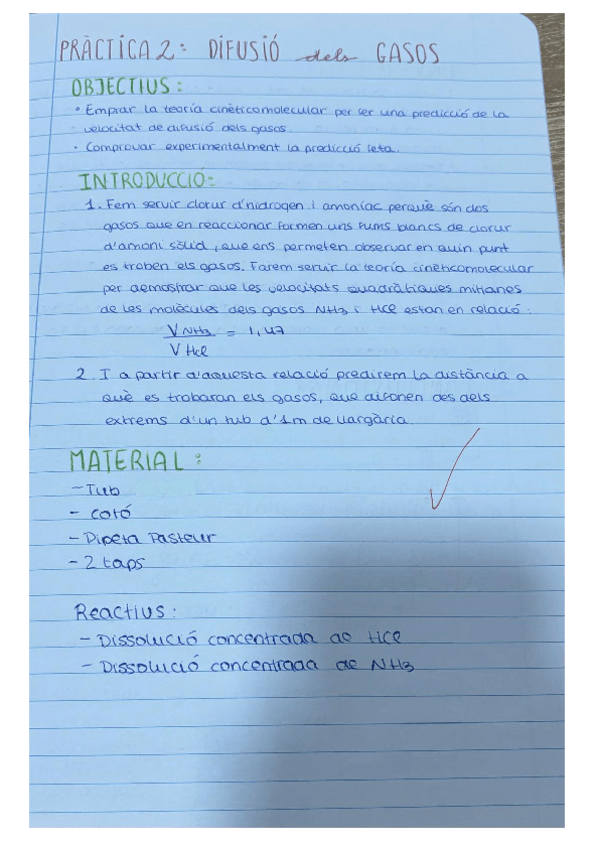 PRÀCTICA 2: DIFUSIÓ dels GASOS
OBJECTIUS:
· Emprar la teoría cinèticomolecular per fer una predicció de la
velocitat de difusió dels gasos.
· Comprovar experimentalment la predicció feta.
INTRODUCCIÓ:
1. Fem servir clorur d'hidrogen i amoníac perquè són dos
gasos que en reaccionar formen uns fums blancs de clorur
d'amoni sòlid, que ens permeten observar en quin punt
es troben els gasos. Farem servir la teoría cinèticomolecular
per demostrar que les velocitats quadràtiques mitjanes
de les molècules dels gasos NH3 i HCl estan en relació:
V NH3 / V HCl = 1,47
2. I a partir d'aquesta relació predirem la distància a
què es trobaran els gasos, que difonen des dels
extrems d'un tub d'1m de llargària.
MATERIAL:
- Tub
- Cotó
- Pipeta Pasteur
- 2 taps
Reactius:
- Dissolució concentrada de HCl
- Dissolució concentrada de NH3